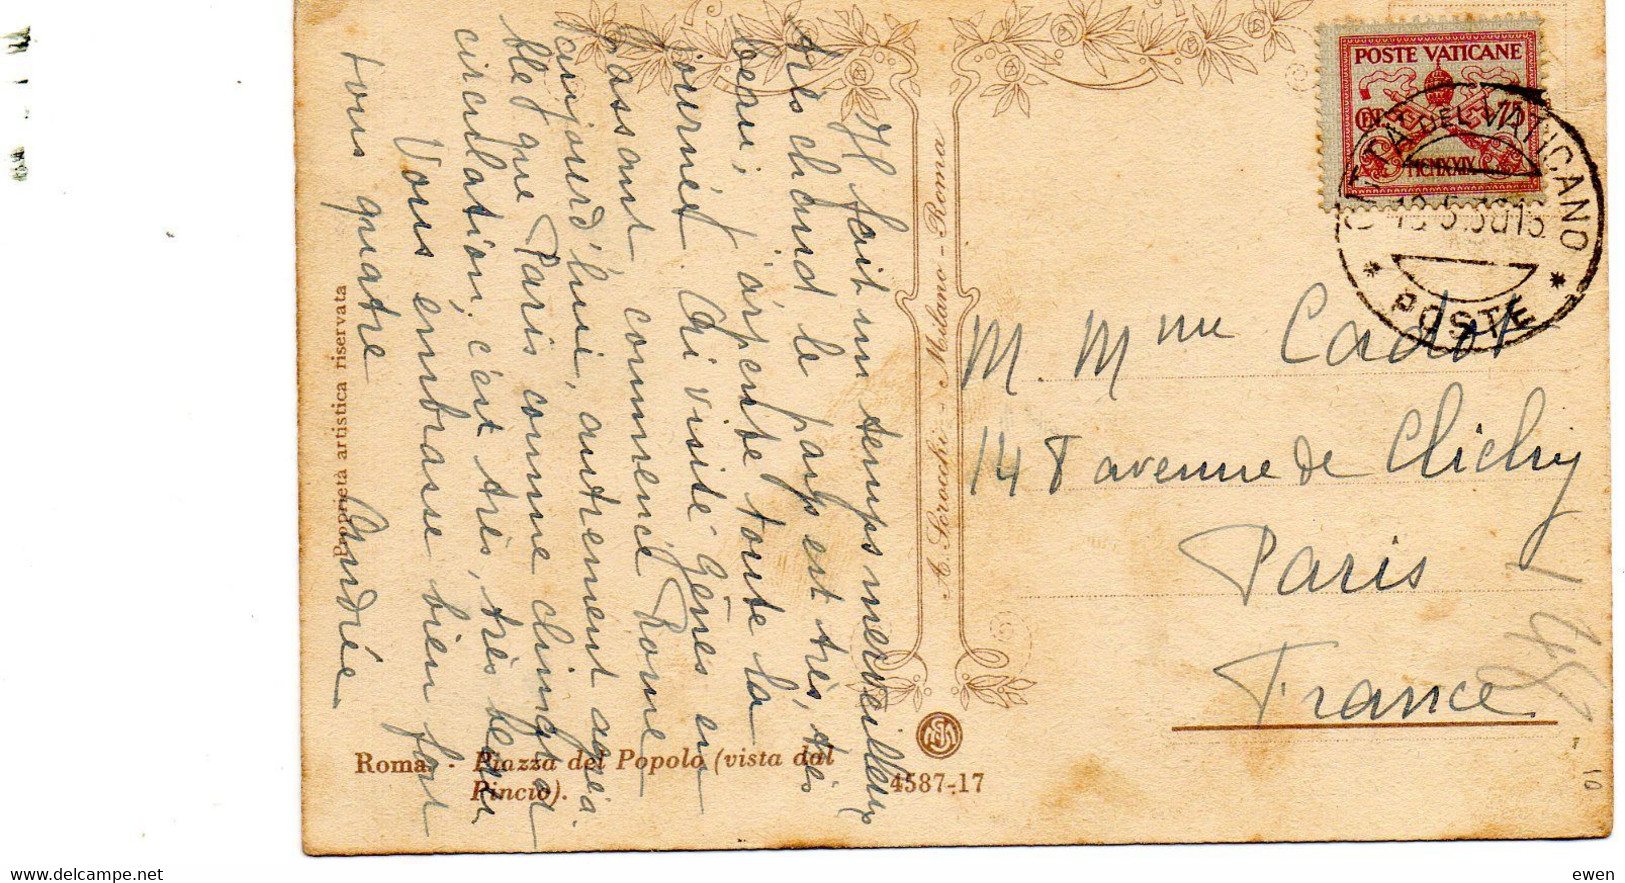 Il fait un temps merveilleux
très chaud le pays est très, très
beau, j'arpente toute la
journée. Ai visité Gênes en
passant, commencé Rome
aujourd'hui, autrement agréa
ble que Paris comme climat
circulation. c'est très, très beau
Vous embrasse bien fort
tous quatre
Andrée
Proprietà artistica riservata
Roma - Piazza del Popolo (vista dal
Pincio).
A. Scrocchi - Milano - Roma
4587-17
POSTE VATICANE
CENT. 75
MCMXXIX
CITTÀ DEL VATICANO
POSTE
M. Mme Cadot
148 avenue de Clichy
Paris
France
10
delcampe.net
ewen